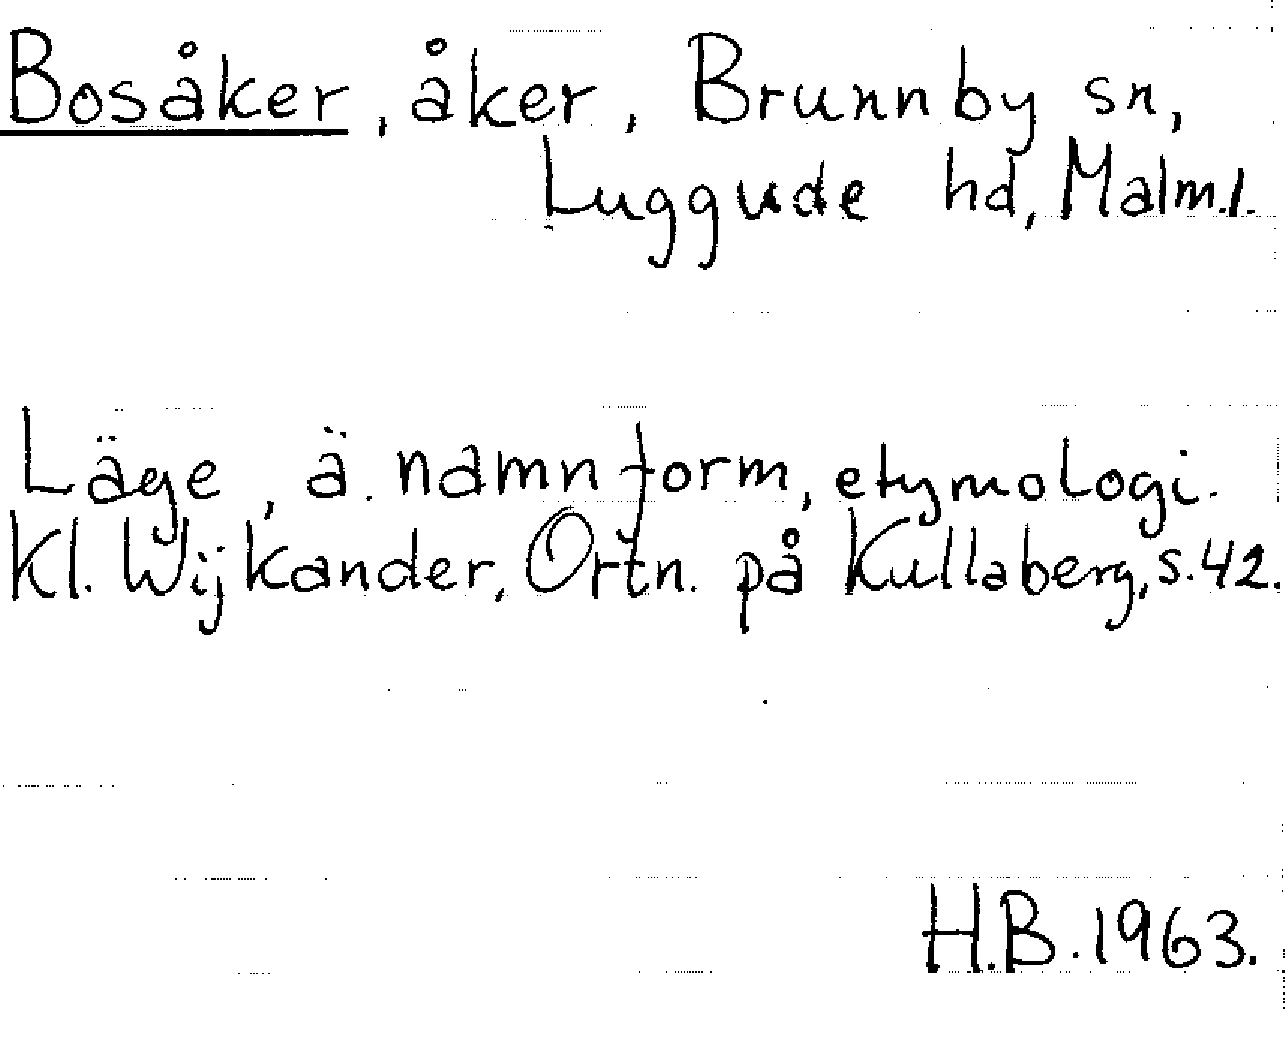 Bosåker, åker, Brunnby sn,
Luggude hd, Malm.l.
Läge, ä. namnform, etymologi.
Kl. Wijkander, Ortn. på Kullaberg, s. 42.
H.B. 1963.